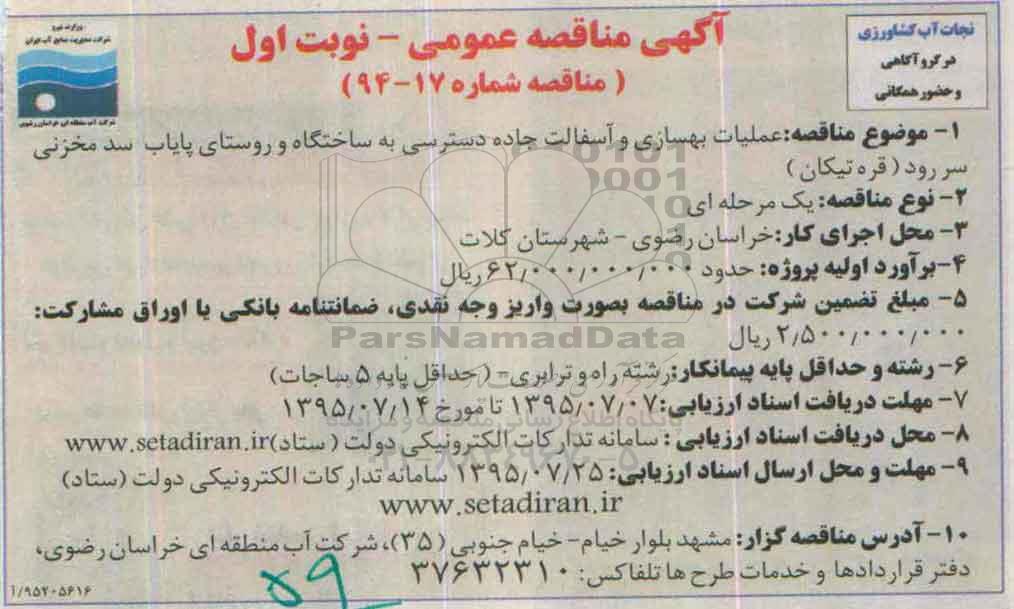 وزارت نیرو
شرکت مدیریت منابع آب ایران
شرکت آب منطقه ای خراسان رضوی
آگهی مناقصه عمومی - نوبت اول
( مناقصه شماره ۱۷-۹۴)
نجات آب کشاورزی
در گرو آگاهی
و حضور همگانی
۱- موضوع مناقصه: عملیات بهسازی و آسفالت جاده دسترسی به ساختگاه و روستای پایاب سد مخزنی
سررود ( قره تیکان )
۲- نوع مناقصه: یک مرحله ای
۳- محل اجرای کار: خراسان رضوی - شهرستان کلات
۴- برآورد اولیه پروژه: حدود ۶۲/۰۰۰/۰۰۰/۰۰۰ ریال
۵- مبلغ تضمین شرکت در مناقصه بصورت واریز وجه نقدی، ضمانتنامه بانکی یا اوراق مشارکت:
۲/۵۰۰/۰۰۰/۰۰۰ ریال
ParsNamadData
۶- رشته و حداقل پایه پیمانکار: رشته راه و ترابری- (حداقل پایه ۵ ساجات)
۷- مهلت دریافت اسناد ارزیابی: ۱۳۹۵/۰۷/۰۷ تا مورخ ۱۳۹۵/۰۷/۱۴
پایگاه اطلاع رسانی مناقصه و مزایده
۸- محل دریافت اسناد ارزیابی : سامانه تدارکات الکترونیکی دولت ( ستاد) www.setadiran.ir
۹- مهلت و محل ارسال اسناد ارزیابی: ۱۳۹۵/۰۷/۲۵ سامانه تدارکات الکترونیکی دولت (ستاد)
www.setadiran.ir
۱۰- آدرس مناقصه گزار: مشهد بلوار خیام- خیام جنوبی (۳۵)، شرکت آب منطقه ای خراسان رضوی،
دفتر قراردادها و خدمات طرح ها تلفاکس: ۳۷۶۳۲۳۱۰
۵۹
۹۵۲۰۵۶۱۶/آ